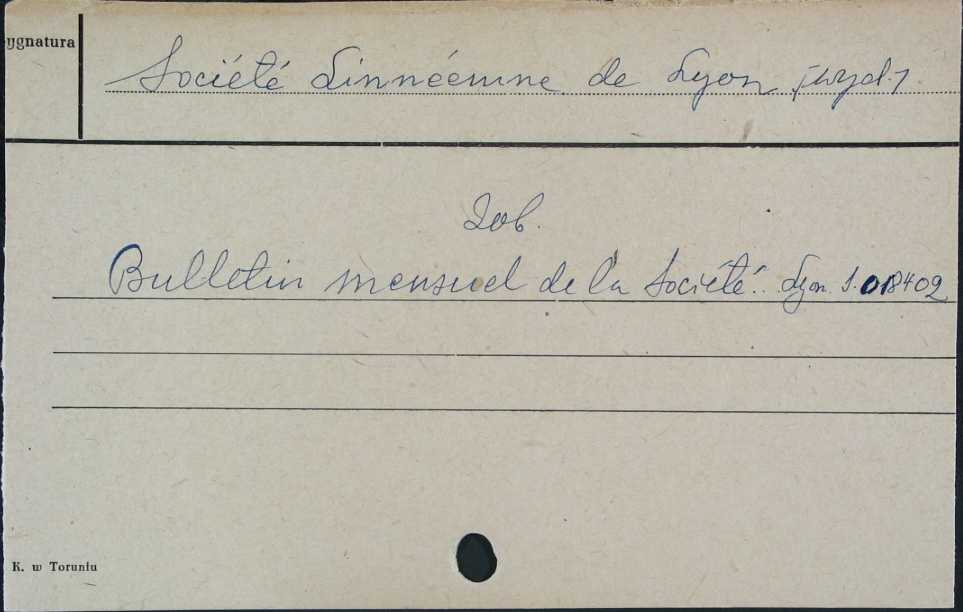 ygnatura
Société Linnéenne de Lyon [wyd.]
Zob.
Bulletin mensuel de la Société.. Lyon. S.018402
K. w Toruniu